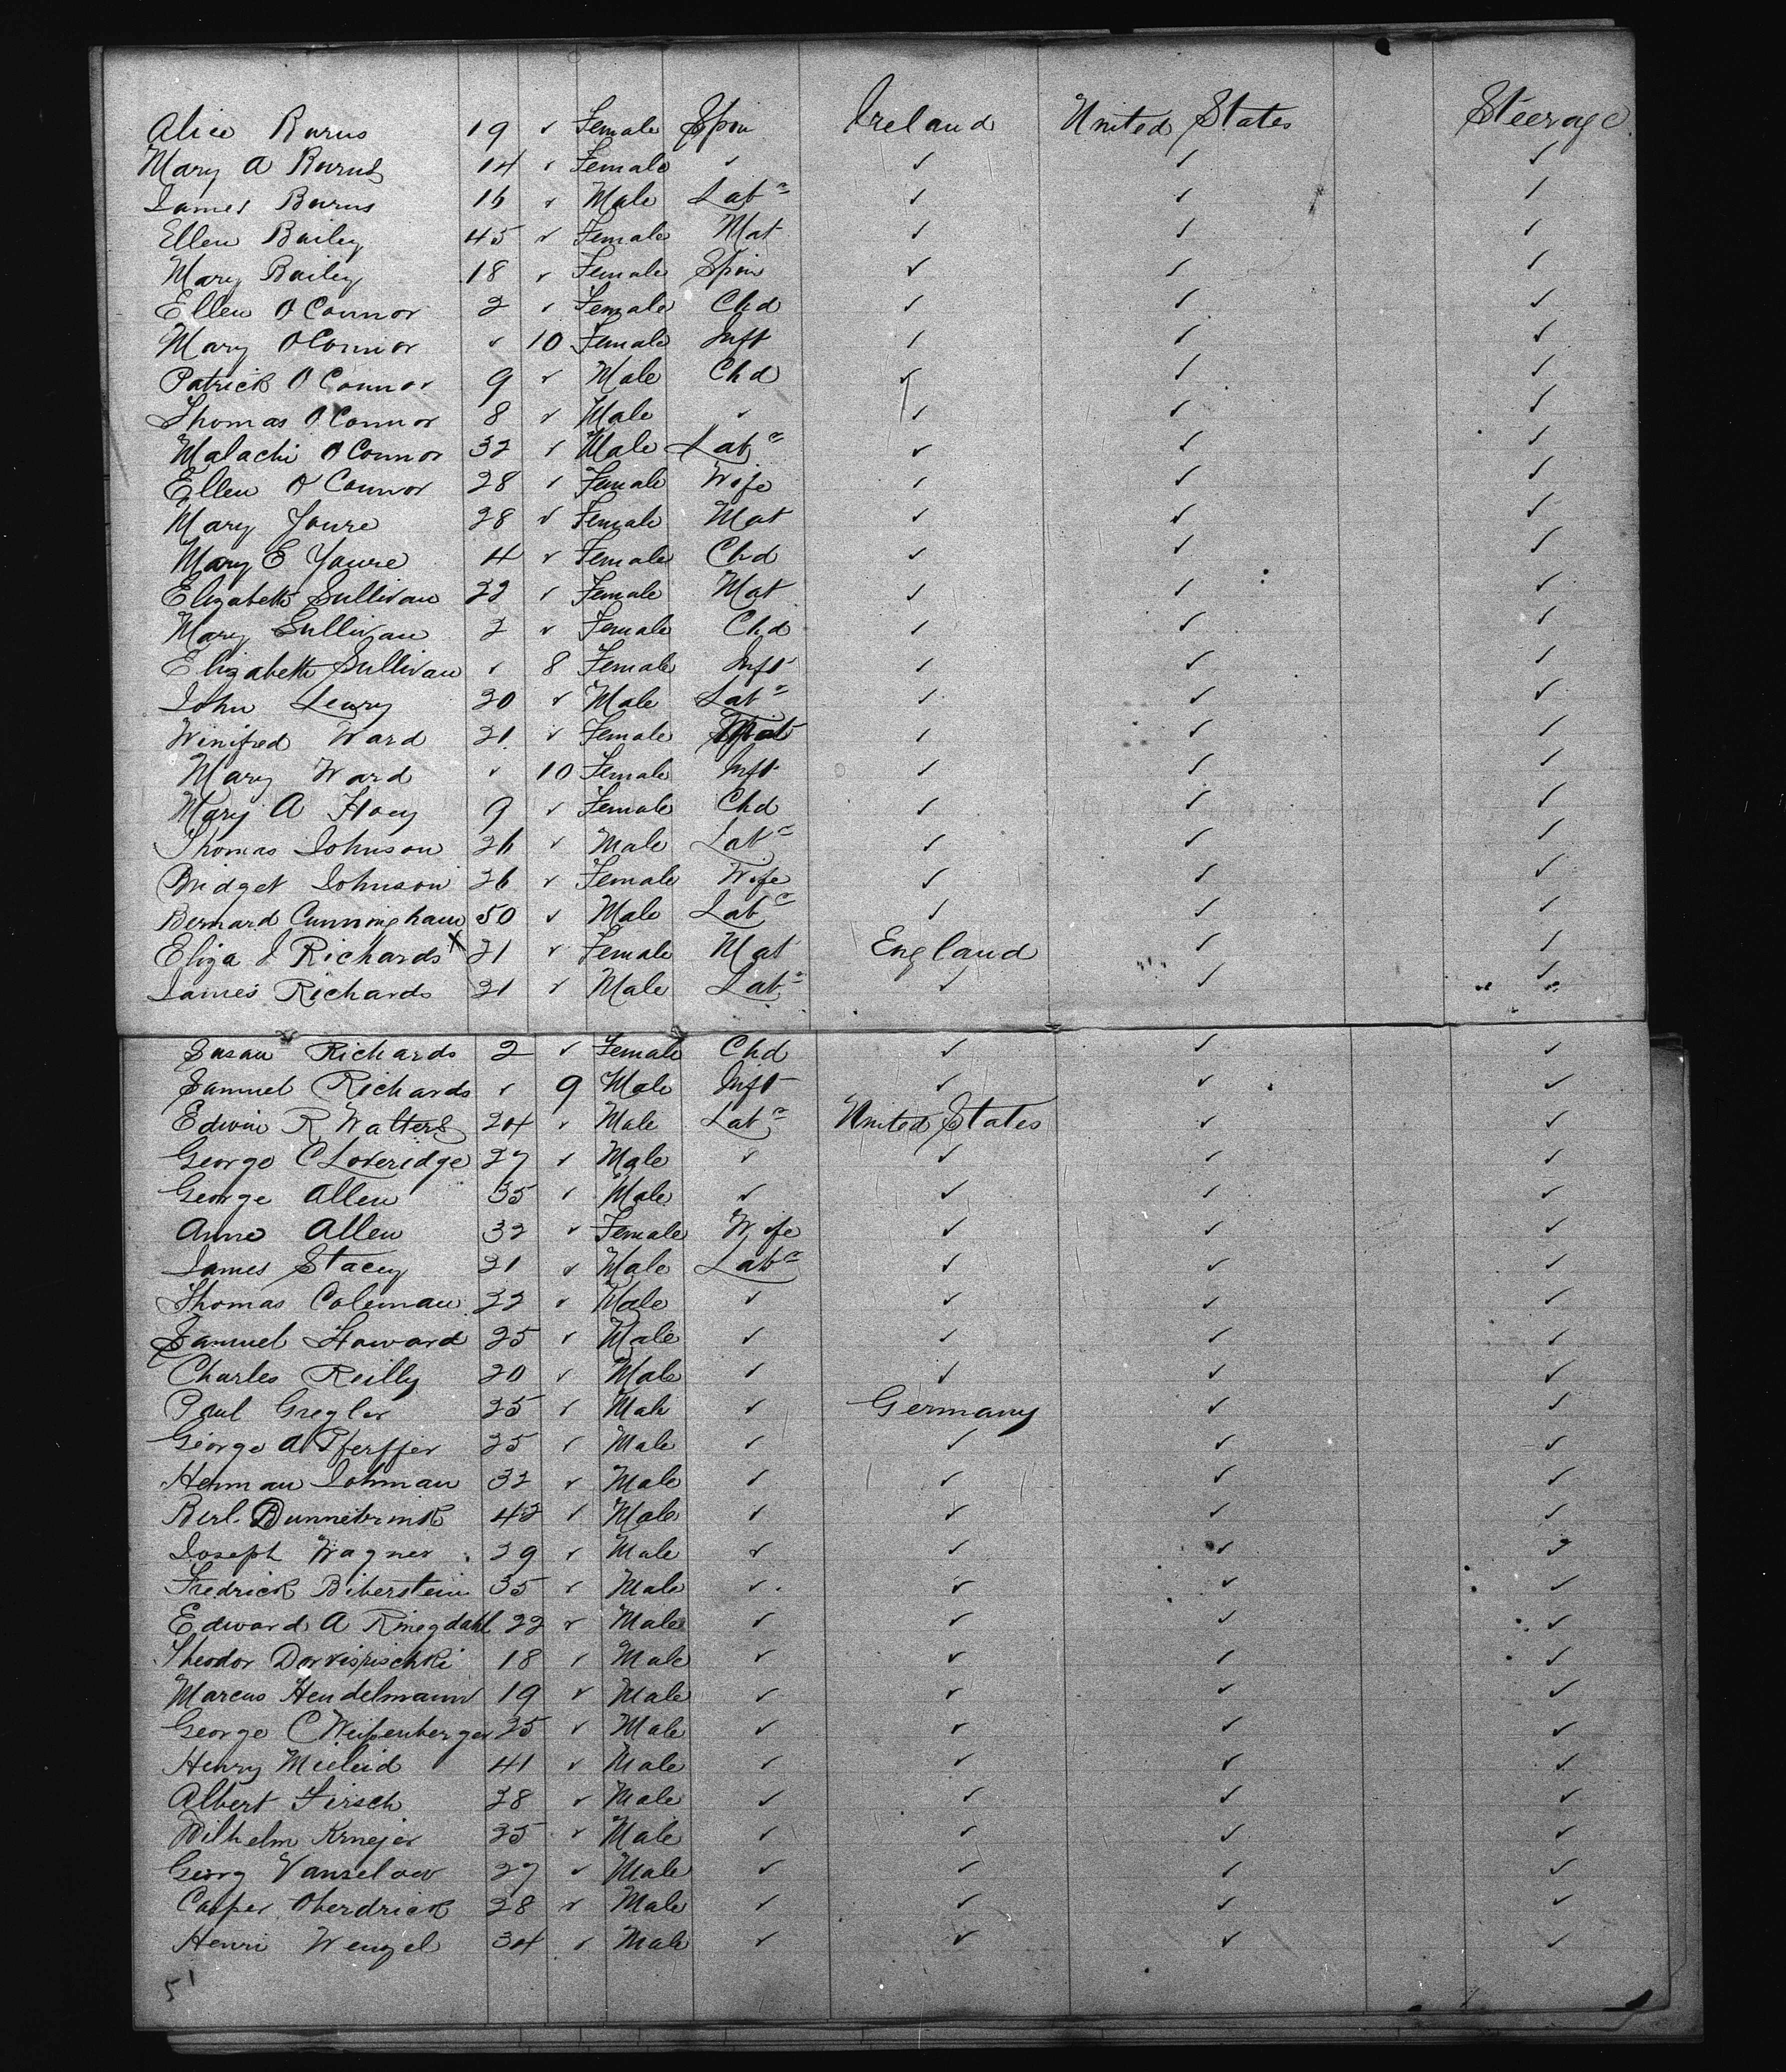 Alice Burns 19 ✓ Female Spin Ireland United States Steerage
Mary A Burns 14 ✓ Female ✓ ✓ ✓ ✓
James Burns 16 ✓ Male Labr ✓ ✓ ✓
Ellen Bailey 45 ✓ Female Mat ✓ ✓ ✓
Mary Bailey 18 ✓ Female Spin ✓ ✓ ✓
Ellen O Connor 2 ✓ Female Chd ✓ ✓ ✓
Mary O Connor ✓ 10 Female Inft ✓ ✓ ✓
Patrick O Connor 9 ✓ Male Chd ✓ ✓ ✓
Thomas O Connor 8 ✓ Male ✓ ✓ ✓ ✓
Malachi O Connor 32 ✓ Male Labr ✓ ✓ ✓
Ellen O Connor 28 ✓ Female Wife ✓ ✓ ✓
Mary Youre 28 ✓ Female Mat ✓ ✓ ✓
Mary E Youre 4 ✓ Female Chd ✓ ✓ ✓
Elizabeth Sullivan 22 ✓ Female Mat ✓ ✓ ✓
Mary Sullivan 2 ✓ Female Chd ✓ ✓ ✓
Elizabeth Sullivan ✓ 8 Female Inft ✓ ✓ ✓
John Leary 20 ✓ Male Labr ✓ ✓ ✓
Winifred Ward 21 ✓ Female Mat ✓ ✓ ✓
Mary Ward ✓ 10 Female Inft ✓ ✓ ✓
Mary A Hoey 9 ✓ Female Chd ✓ ✓ ✓
Thomas Johnson 26 ✓ Male Labr ✓ ✓ ✓
Bridget Johnson 26 ✓ Female Wife ✓ ✓ ✓
Bernard Cunningham 50 ✓ Male Labr ✓ ✓ ✓
Eliza J Richards x 21 ✓ Female Mat England ✓ ✓
James Richards 21 ✓ Male Labr ✓ ✓ ✓
Susan Richards 2 ✓ Female Chd ✓ ✓ ✓
Samuel Richards ✓ 9 Male Inft ✓ ✓ ✓
Edwin R Walters 24 ✓ Male Labr United States ✓ ✓
George C Loveridge 27 ✓ Male ✓ ✓ ✓ ✓
George Allen 35 ✓ Male ✓ ✓ ✓ ✓
Anne Allen 32 ✓ Female Wife ✓ ✓ ✓
James Stacey 21 ✓ Male Labr ✓ ✓ ✓
Thomas Coleman 22 ✓ Male ✓ ✓ ✓ ✓
Samuel Howard 25 ✓ Male ✓ ✓ ✓ ✓
Charles Reilly 20 ✓ Male ✓ ✓ ✓ ✓
Paul Gregler 25 ✓ Male ✓ Germany ✓ ✓
George A Pferffer 25 ✓ Male ✓ ✓ ✓ ✓
Herman Lohman 32 ✓ Male ✓ ✓ ✓ ✓
Berl. Dunnebrink 42 ✓ Male ✓ ✓ ✓ ✓
Joseph Wagner 29 ✓ Male ✓ ✓ ✓ ✓
Fredrick Biberstein 35 ✓ Male ✓ ✓ ✓ ✓
Edward A Ringdahl 22 ✓ Male ✓ ✓ ✓ ✓
Theodor 18 ✓ Male ✓ ✓ ✓ ✓
Marcus Hendelmann 19 ✓ Male ✓ ✓ ✓ ✓
George C Weißenberger 25 ✓ Male ✓ ✓ ✓ ✓
Henry 41 ✓ Male ✓ ✓ ✓ ✓
Albert Firsch 28 ✓ Male ✓ ✓ ✓ ✓
Wilhelm 25 ✓ Male ✓ ✓ ✓ ✓
Georg Vanselow 27 ✓ Male ✓ ✓ ✓ ✓
Casper Oberdrick 28 ✓ Male ✓ ✓ ✓ ✓
Henri Wenzel 34 ✓ Male ✓ ✓ ✓ ✓
51